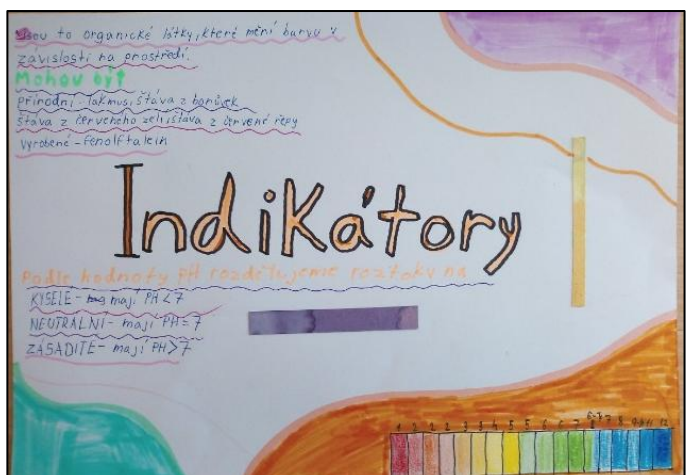 Jsou to organické látky, které mění barvu v
závislosti na prostředí.
Mohou být
přírodní - lakmus, šťáva z borůvek
šťáva z červeného zelí, šťáva z červené řepy
vyrobené - fenolftalein
Indikátory
Podle hodnoty pH rozdělujeme roztoky na
KYSELÉ - mají PH < 7
NEUTRÁLNÍ - mají PH = 7
ZÁSADITÉ - mají PH > 7